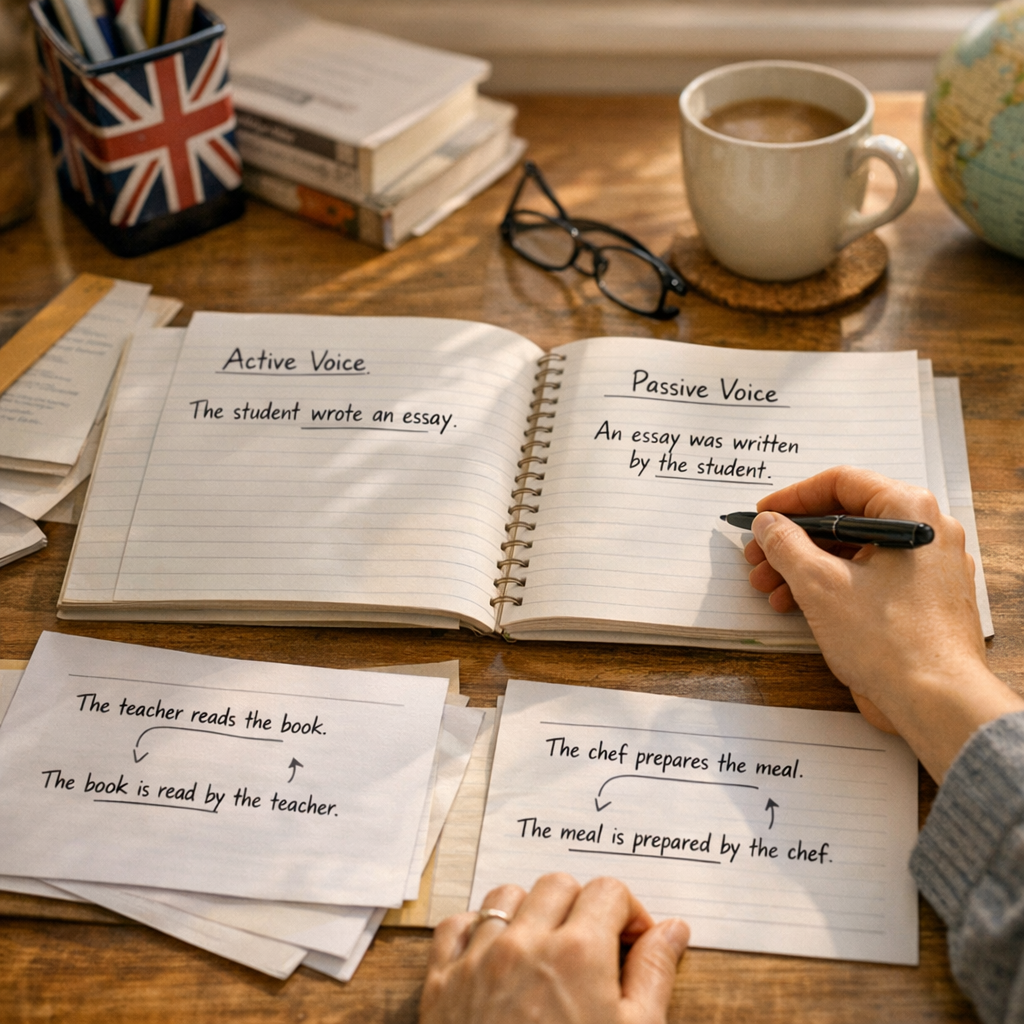 Active Voice
The student wrote an essay.
Passive Voice
An essay was written
by the student.
The teacher reads the book.
The book is read by the teacher.
The chef prepares the meal.
The meal is prepared by the chef.